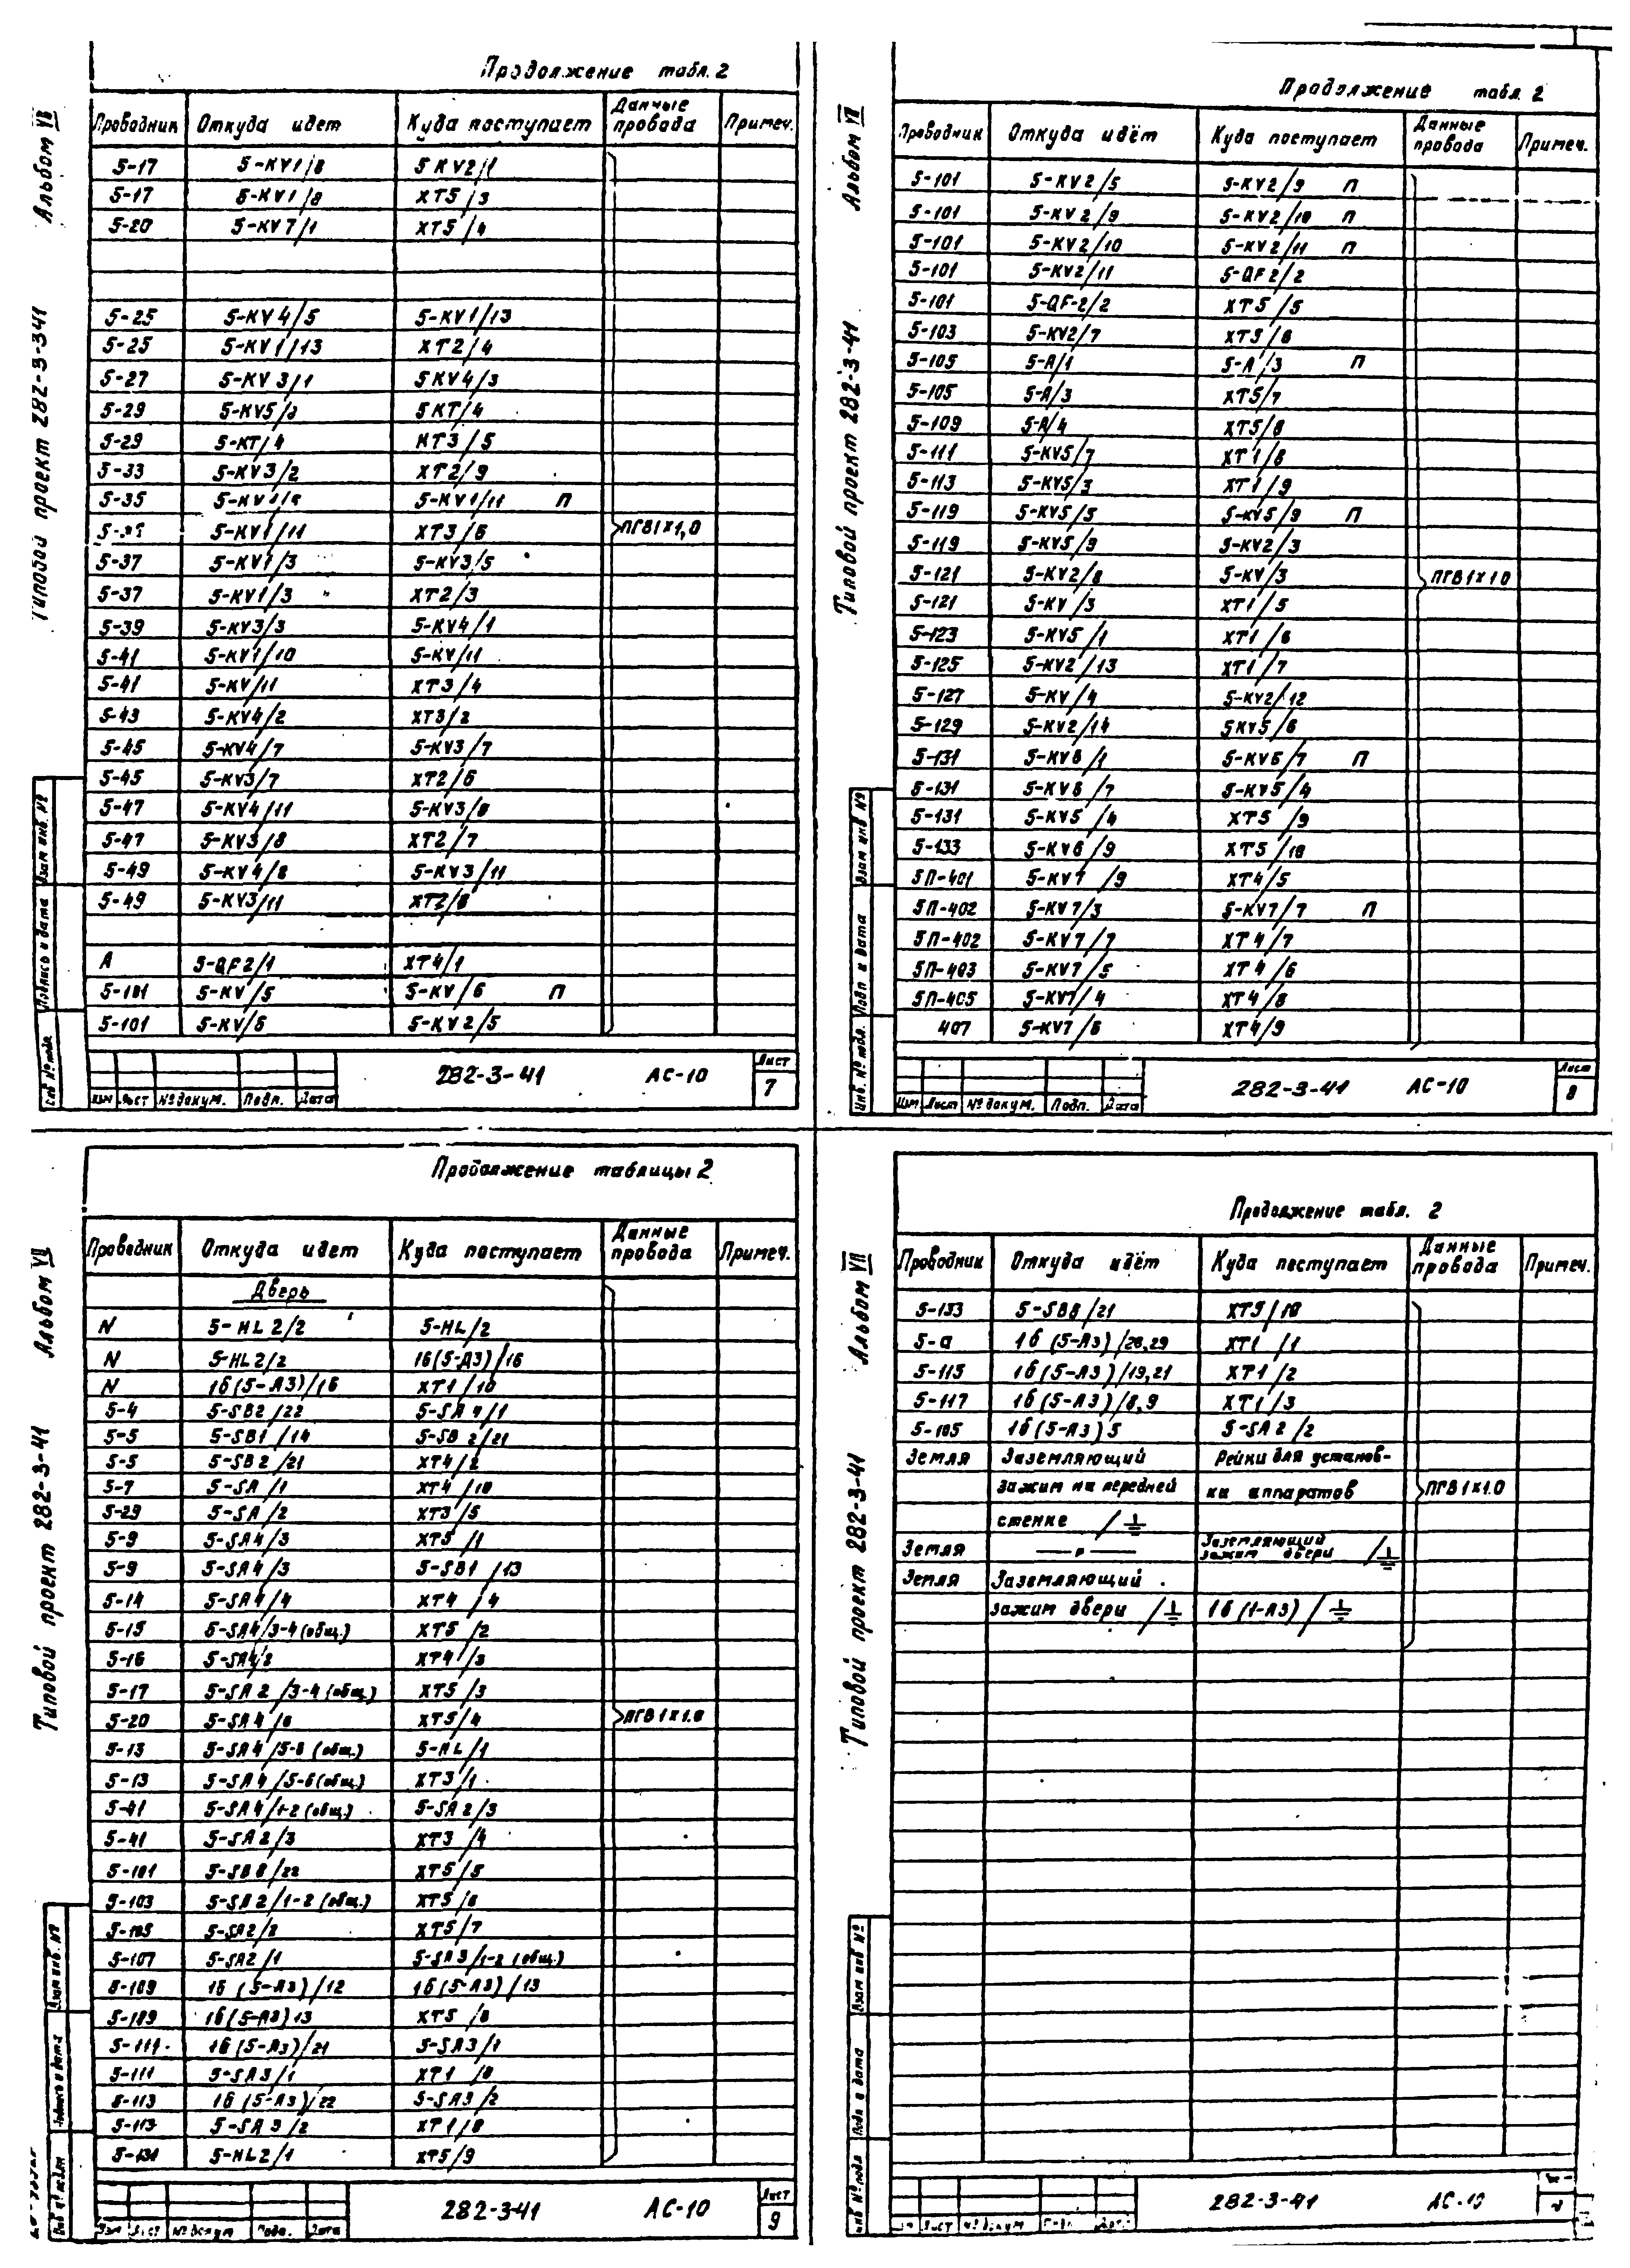 Продолжение табл. 2
Альбом VII
Типовой проект 282-3-341
Проводник Откуда идет Куда поступает Данные провода Примеч.
5-17 5-KV1/8 5KV2/1
5-17 5-KV1/8 XT5/3
5-20 5-KV7/1 XT5/4
5-25 5-KV4/5 5-KV1/13
5-25 5-KV1/13 XT2/4
5-27 5-KV3/1 5KV4/3
5-29 5-KV5/ 5KT/4
5-29 5-KT/4 XT3/5
5-33 5-KV3/2 XT2/9
5-35 5-KV1/ 5-KV1/11 П
5-35 5-KV1/11 XT3/6 ПГВ1×1,0
5-37 5-KV1/3 5-KV3/5
5-37 5-KV1/3 XT2/3
5-39 5-KV3/3 5-KV4/1
5-41 5-KV1/10 5-KV/11
5-41 5-KV/11 XT3/4
5-43 5-KV4/2 XT3/2
5-45 5-KV4/7 5-KV3/7
5-45 5-KV3/7 XT2/6
5-47 5-KV4/11 5-KV3/8
5-47 5-KV3/8 XT2/7
5-49 5-KV4/8 5-KV3/11
5-49 5-KV3/11 XT2/8
А 5-QF2/1 XT4/1
5-101 5-KV/5 5-KV/6 П
5-101 5-KV/6 5-KV2/5
Взам инв. №
Подпись и дата
Инв № подл.
Изм Лист № докум. Подп. Дата
282-3-41 АС-10 Лист 7
Продолжение табл. 2
Альбом VII
Типовой проект 282-3-41
Проводник Откуда идёт Куда поступает Данные провода Примеч.
5-101 5-KV2/5 5-KV2/9 П
5-101 5-KV2/9 5-KV2/10 П
5-101 5-KV2/10 5-KV2/11 П
5-101 5-KV2/11 5-QF2/2
5-101 5-QF-2/2 XT5/5
5-103 5-KV2/7 XT5/6
5-105 5-A/1 5-A/3 П
5-105 5-A/3 XT5/7
5-109 5-A/4 XT5/8
5-111 5-KV5/7 XT1/8
5-113 5-KV5/3 XT1/9
5-119 5-KV5/5 5-KV5/9 П
5-119 5-KV5/9 5-KV2/3
5-121 5-KV2/8 5-KV/3 ПГВ1×1.0
5-121 5-KV/3 XT1/5
5-123 5-KV5/1 XT1/6
5-125 5-KV2/13 XT1/7
5-127 5-KV/4 5-KV2/12
5-129 5-KV2/14 5KV5/6
5-131 5-KV6/1 5-KV6/7 П
5-131 5-KV6/7 5-KV5/4
5-131 5-KV5/4 XT5/9
5-133 5-KV6/9 XT5/10
5П-401 5-KV7/9 XT4/5
5П-402 5-KV7/3 5-KV7/7 П
5П-402 5-KV7/7 XT4/7
5П-403 5-KV7/5 XT4/6
5П-405 5-KV7/4 XT4/8
407 5-KV7/6 XT4/9
Взам инв №
Подп и дата
Инв. № подл.
Изм Лист № докум. Подп. Дата
282-3-41 АС-10 Лист 8
Продолжение таблицы 2
Альбом VII
Типовой проект 282-3-41
Проводник Откуда идет Куда поступает Данные провода Примеч.
Дверь
N 5-HL2/2 5-HL/2
N 5-HL2/2 1б(5-А3)/16
N 1б(5-А3)/16 XT1/10
5-4 5-SB2/22 5-SA4/1
5-5 5-SB1/14 5-SB2/21
5-5 5-SB2/21 XT4/2
5-7 5-SA/1 XT4/10
5-29 5-SA/2 XT3/5
5-9 5-SA4/3 XT5/1
5-9 5-SA4/3 5-SB1/13
5-14 5-SA4/4 XT4/4
5-15 5-SA4/3-4(общ.) XT5/2
5-16 5-SA4/2 XT4/3
5-17 5-SA2/3-4(общ.) XT5/3
5-20 5-SA4/6 XT5/4 ПГВ1×1.0
5-13 5-SA4/5-6(общ.) 5-HL/1
5-13 5-SA4/5-6(общ.) XT3/1
5-41 5-SA4/1-2(общ.) 5-SA2/3
5-41 5-SA2/3 XT3/4
5-101 5-SB8/22 XT5/5
5-103 5-SA2/1-2(общ.) XT5/6
5-105 5-SA2/2 XT5/7
5-107 5-SA2/1 5-SA3/1-2(общ.)
5-109 1б(5-А3)/12 1б(5-А3)/13
5-109 1б(5-А3)13 XT5/8
5-111 1б(5-А3)/21 5-SA3/1
5-111 5-SA3/1 XT1/8
5-113 1б(5-А3)/22 5-SA3/2
5-113 5-SA3/2 XT1/8
5-131 5-HL2/1 XT5/9
Взам инв. №
Подпись и дата
Изм Лист № докум Подп. Дата
282-3-41 АС-10 Лист 9
Продолжение табл. 2
Альбом VII
Типовой проект 282-3-41
Проводник Откуда идёт Куда поступает Данные провода Примеч.
5-133 5-SB8/21 XT5/10
5-а 1б(5-А3)/28,29 XT1/1
5-115 1б(5-А3)/19,21 XT1/2
5-117 1б(5-А3)/8,9 XT1/3
5-105 1б(5-А3)5 5-SA2/2
Земля Заземляющий Рейки для установ-
зажим на передней ки аппаратов ПГВ1×1.0
стенке /⏚
Земля —„— Заземляющий зажим двери /⏚
Земля Заземляющий
зажим двери /⏚ 1б(1-А3)/⏚
Взам инв №
Подп и дата
Инв № подл
Лист № докум
282-3-41 АС-10